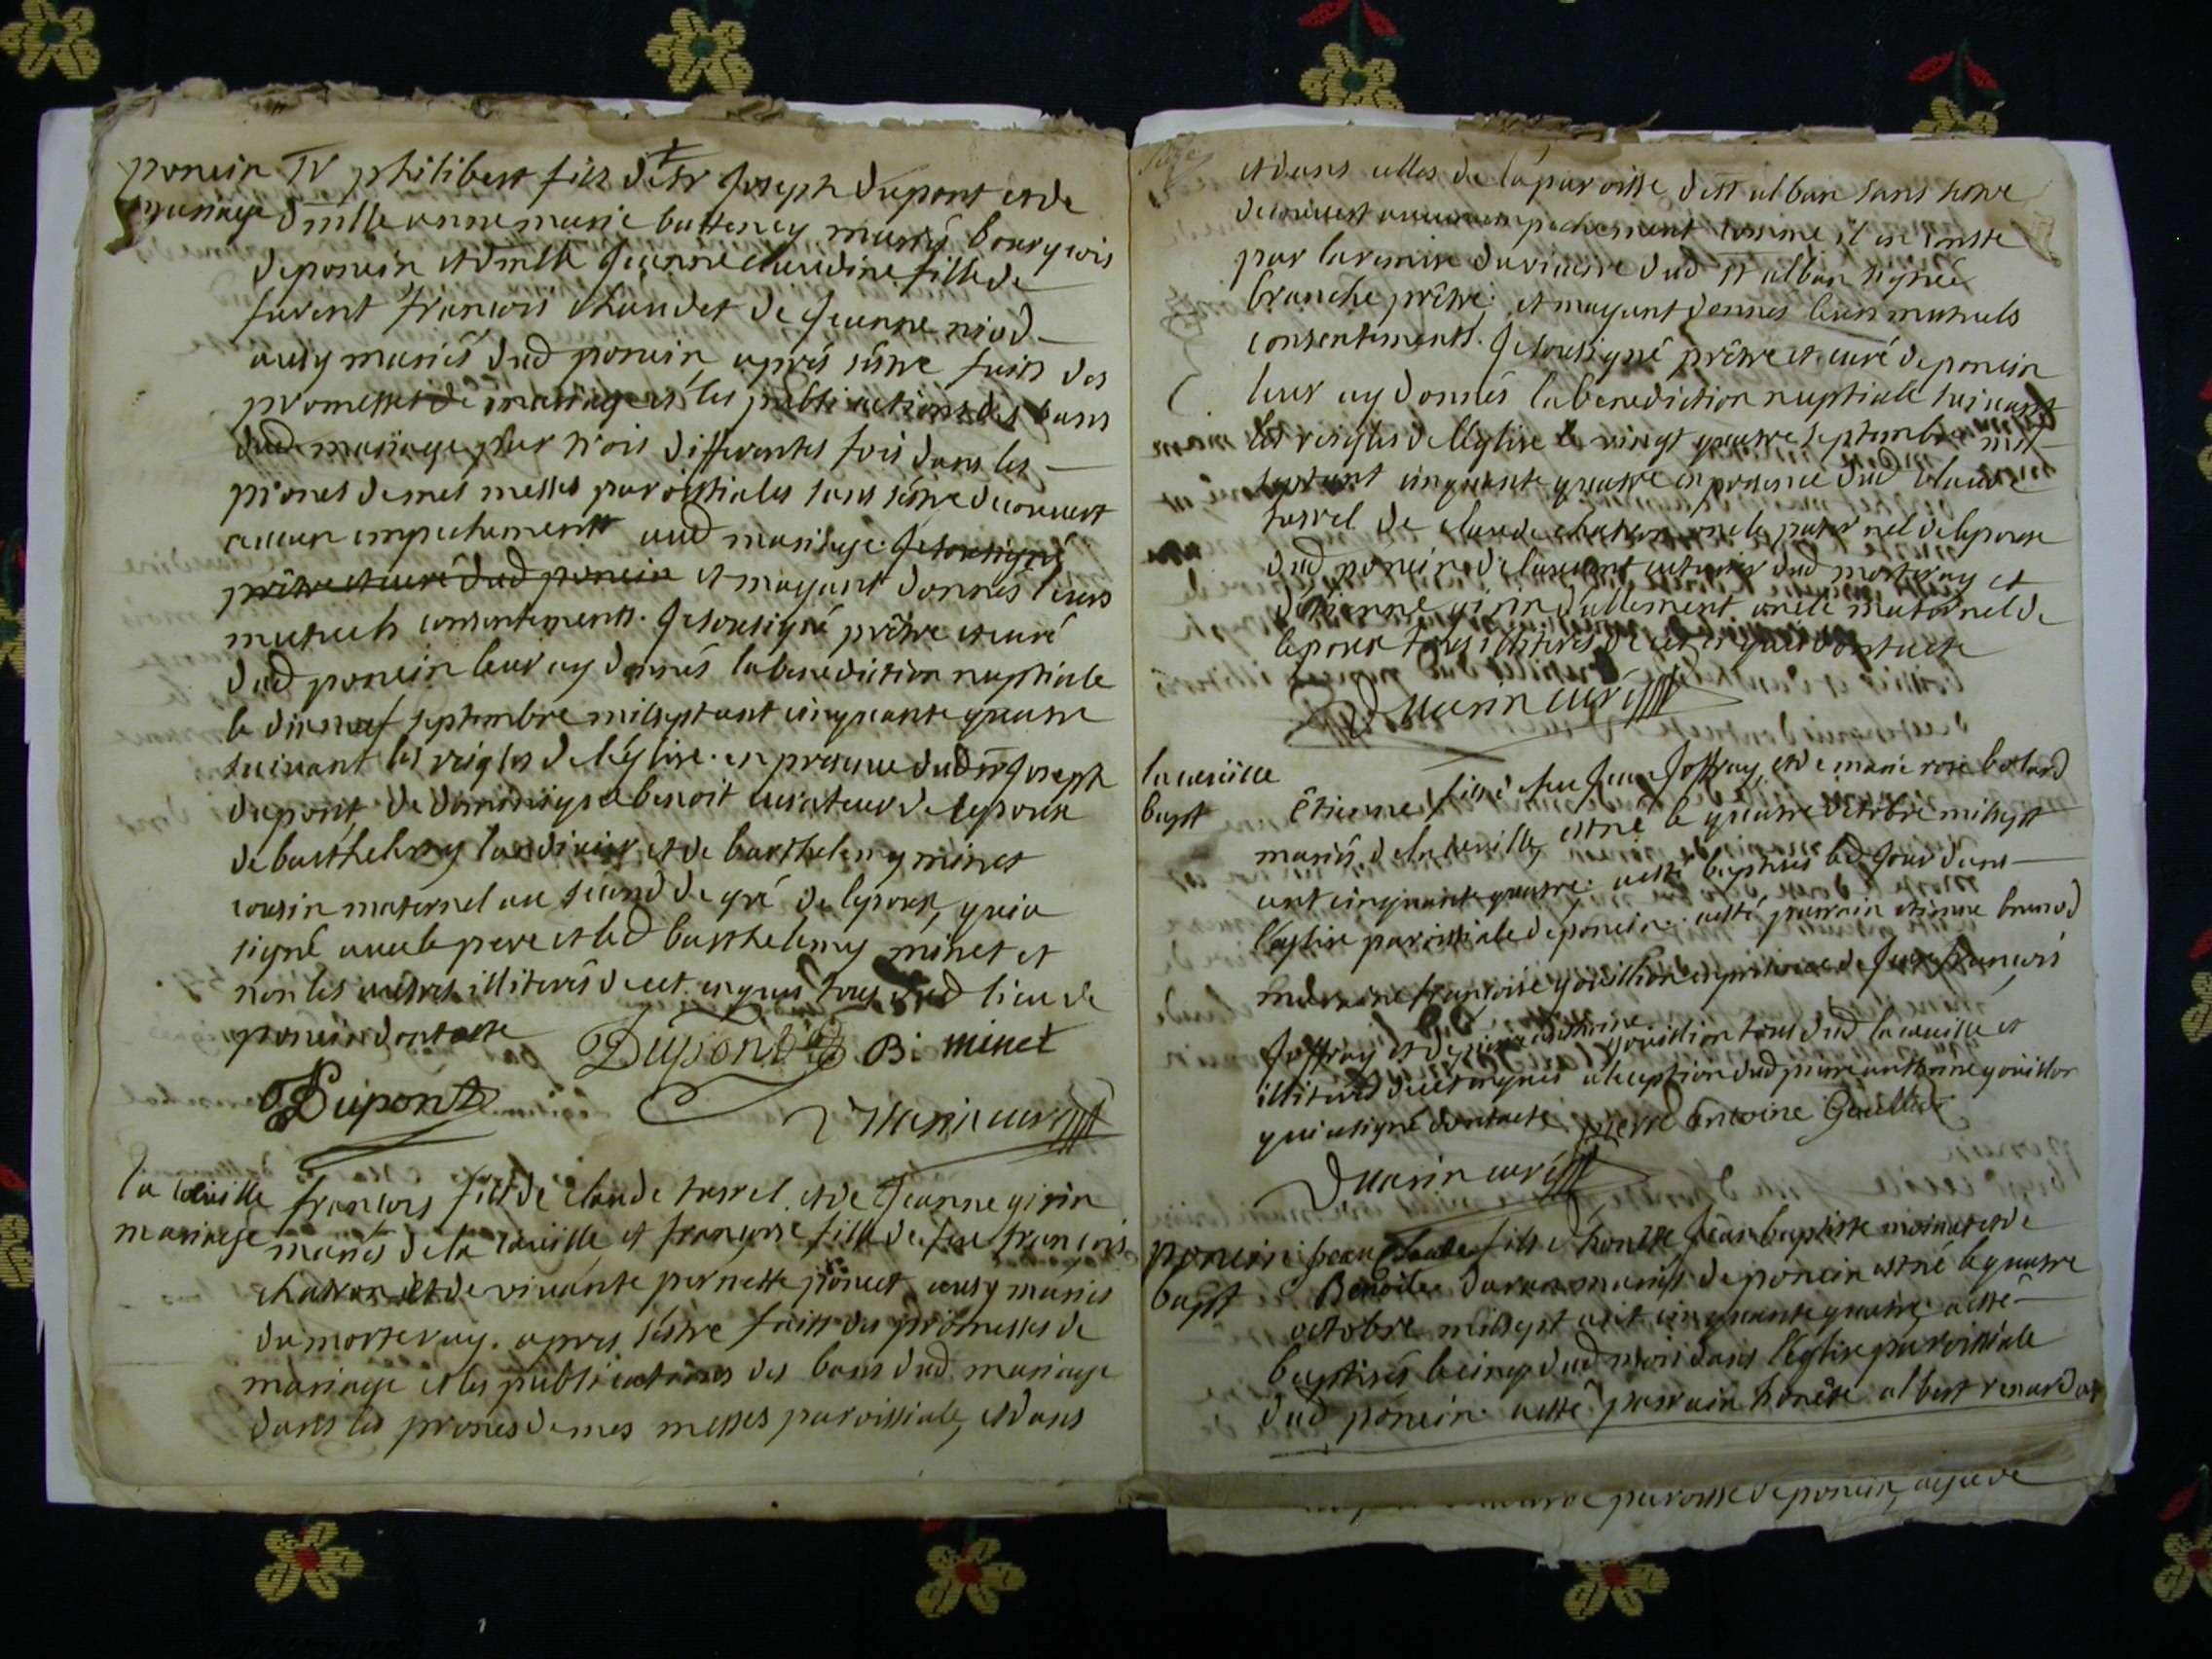 poncin Sr philibert fils de Sr Joseph dupont et de
mariage dmlle anne marie batteney mariés bourgeois
de poncin et dmlle Jeanne claudine fille de
furent francois chaudet de Jeanne niod
ausy mariés dud poncin après sêtre faits des
promesses de mariage et les publications des bans
dud mariage par trois differentes fois dans les
prones de mes messes paroissiales sans sêtre decouvert
aucun empechements aud mariage Je soussigné
prêtre et curé dud poncin et mayant donnés leurs
mutuels consentements. Je sousigné prêtre et curé
dud poncin leur ay donnés la benediction nuptiale
le dixneuf septembre mil sept cent cinquante quatre
suivant les reigles de léglise. en presence dud sr Joseph
dupont, de benoit curateur de lepouse
de barthelemy et de barthelemy minet
cousin maternel au second degré de lepouse, qui a
signé avec le pere et led barthelemy minet et
non les autres illiterés de cet enquis tous dud lieu de
poncin dont acte
Dupont Bi minet
Dupont curé
la cueille francois fils de claude tarrel et de Jeanne girin
mariage mariés de la cueille et françoise fille de feu francois
chatron et de vivante pernette poncet ausy mariés
du morteray. apres sêtre faits des promesses de
mariage et les publications des bans dud mariage
dans les prones de mes messes paroissiale, et dans
et dans celles de la paroisse de st alban sans sêtre
decouvert aucun empechement comme il en conste
par la remise du vicaire dud st alban signée
branche prêtre, et mayant donnés leurs mutuels
consentements. Je sousigné prêtre et curé de poncin
leur ay donnés la benediction nuptiale suivant
les reigles de léglise le vingt quatre septembre mil
sept cent cinquante quatre en presence dud claude
tarrel de claude chatron oncle paternel de lepouse
dud poncin dud morteray et
détienne girin dallement oncle maternel de
lepoux tous illiterés de cet enquis dont acte
curé
la cueille
bapt Êtienne fils de feu Jean Joffray, et de marie rose
mariés de la cueille, est né le quatre octobre mil sept
cent cinquante quatre, a esté baptisés led Jour dans
léglise paroissiale de poncin. a esté parrain etienne brunod
marraine françoise gouillon en presence de Jean francois
Joffray et de pierre anthoine gouillon tous dud la cueille et
illiterés de cet enquis a lexception dud pierre anthoine gouillon
qui a signé dont acte pierre antoine
curé
poncin
bapt fils dhoneste Jean baptiste et de
Benoite mariés de poncin est né le quatre
octobre mil sept cent cinquante quatre, a esté
baptisés le cinq dud mois dans léglise paroissiale
dud poncin. a esté parrain honête albert
paroisse de poncin, agé de